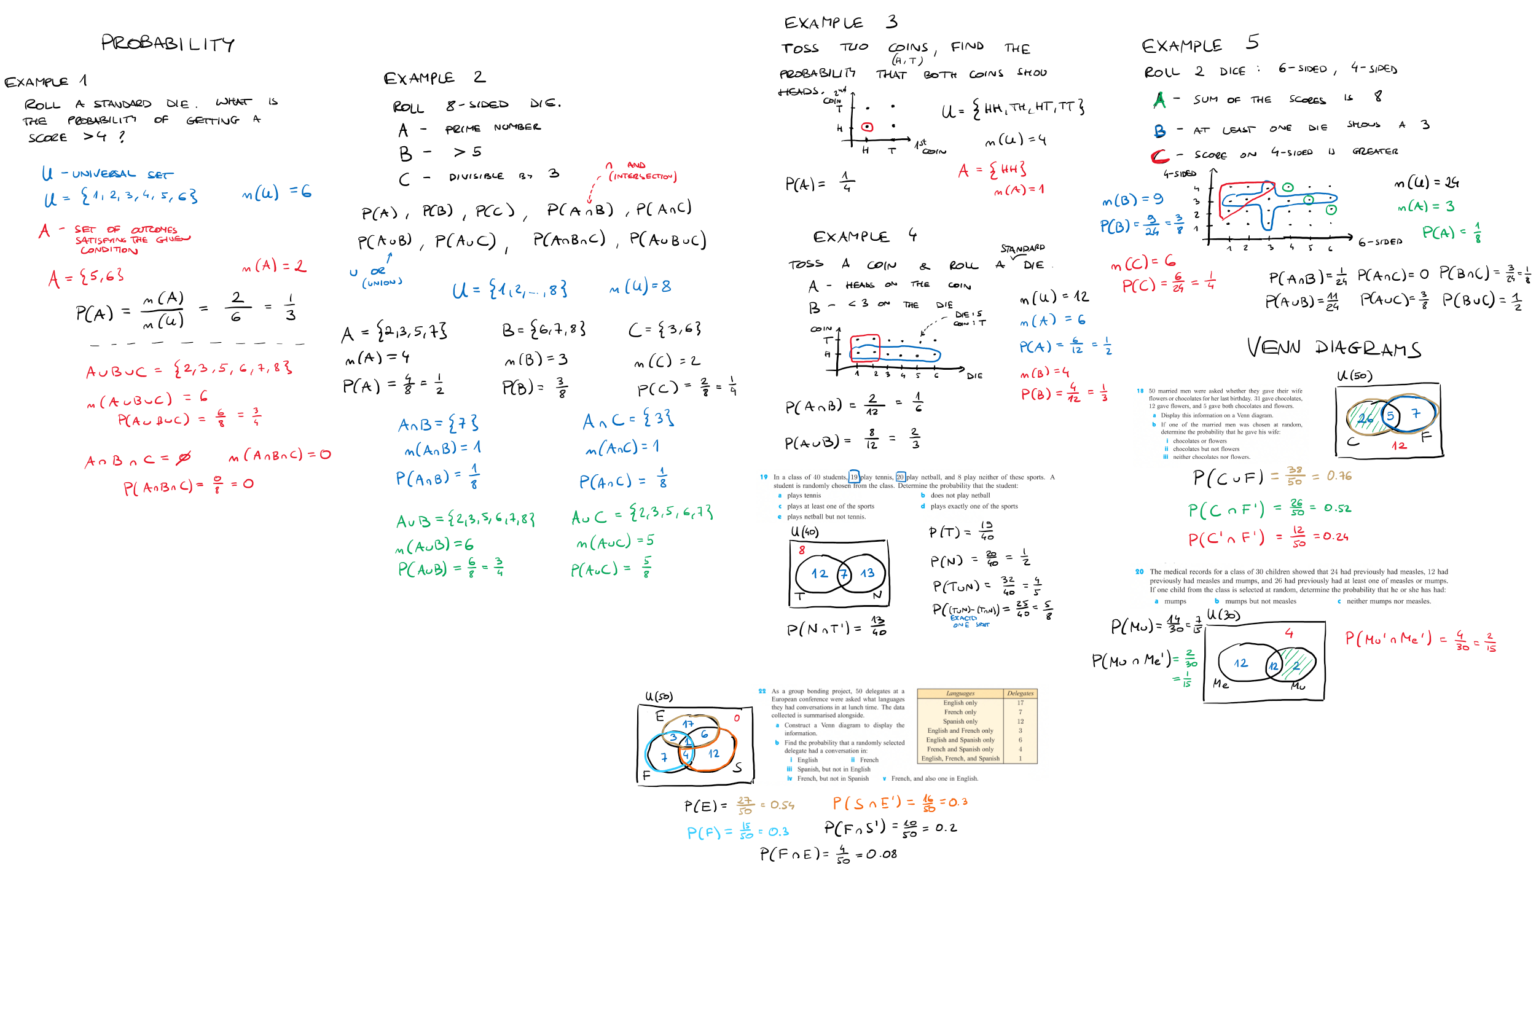 PROBABILITY
EXAMPLE 1
ROLL A STANDARD DIE. WHAT IS
THE PROBABILITY OF GETTING A
SCORE >4?
U - UNIVERSAL SET
U = {1, 2, 3, 4, 5, 6} n(U) = 6
A - SET OF OUTCOMES
SATISFYING THE GIVEN
CONDITION
A = {5,6} n(A) = 2
P(A) = n(A)/n(U) = 2/6 = 1/3
A∪B∪C = {2,3,5,6,7,8}
n(A∪B∪C) = 6
P(A∪B∪C) = 6/8 = 3/4
A∩B∩C = ∅ n(A∩B∩C) = 0
P(A∩B∩C) = 0/8 = 0
EXAMPLE 2
ROLL 8-SIDED DIE.
A - PRIME NUMBER
B - >5
C - DIVISIBLE BY 3
∩ AND
(INTERSECTION)
P(A), P(B), P(C), P(A∩B), P(A∩C)
P(A∪B), P(A∪C), P(A∩B∩C), P(A∪B∪C)
∪ OR
(UNION)
U = {1,2,...,8} n(U) = 8
A = {2,3,5,7} B = {6,7,8} C = {3,6}
n(A) = 4 n(B) = 3 n(C) = 2
P(A) = 4/8 = 1/2 P(B) = 3/8 P(C) = 2/8 = 1/4
A∩B = {7} A∩C = {3}
n(A∩B) = 1 n(A∩C) = 1
P(A∩B) = 1/8 P(A∩C) = 1/8
A∪B = {2,3,5,6,7,8} A∪C = {2,3,5,6,7}
n(A∪B) = 6 n(A∪C) = 5
P(A∪B) = 6/8 = 3/4 P(A∪C) = 5/8
EXAMPLE 3
TOSS TWO COINS, FIND THE
(H,T)
PROBABILITY THAT BOTH COINS SHOW
HEADS.
2nd
COIN
T
H
H T
1st
COIN
U = {HH, TH, HT, TT}
n(U) = 4
A = {HH}
n(A) = 1
P(A) = 1/4
EXAMPLE 4
STANDARD
TOSS A COIN & ROLL A DIE.
A - HEADS ON THE COIN
B - <3 ON THE DIE
COIN
T
H
1 2 3 4 5 6 DIE
DIE: 5
COIN: T
n(U) = 12
n(A) = 6
P(A) = 6/12 = 1/2
n(B) = 4
P(B) = 4/12 = 1/3
P(A∩B) = 2/12 = 1/6
P(A∪B) = 8/12 = 2/3
19 In a class of 40 students, 19 play tennis, 20 play netball, and 8 play neither of these sports. A
student is randomly chosen from the class. Determine the probability that the student:
a plays tennis b does not play netball
c plays at least one of the sports d plays exactly one of the sports
e plays netball but not tennis.
U(40)
8
12 7 13
T N
P(T) = 19/40
P(N) = 20/40 = 1/2
P(T∪N) = 32/40 = 4/5
P((T∪N)-(T∩N)) = 25/40 = 5/8
EXACTLY
ONE SPORT
P(N∩T') = 13/40
EXAMPLE 5
ROLL 2 DICE: 6-SIDED, 4-SIDED
A - SUM OF THE SCORES IS 8
B - AT LEAST ONE DIE SHOWS A 3
C - SCORE ON 4-SIDED IS GREATER
4-SIDED
4
3
2
1
1 2 3 4 5 6 6-SIDED
n(B) = 9
P(B) = 9/24 = 3/8
n(C) = 6
P(C) = 6/24 = 1/4
n(U) = 24
n(A) = 3
P(A) = 1/8
P(A∩B) = 1/24 P(A∩C) = 0 P(B∩C) = 3/24 = 1/8
P(A∪B) = 11/24 P(A∪C) = 3/8 P(B∪C) = 1/2
VENN DIAGRAMS
18 50 married men were asked whether they gave their wife
flowers or chocolates for her last birthday. 31 gave chocolates,
12 gave flowers, and 5 gave both chocolates and flowers.
a Display this information on a Venn diagram.
b If one of the married men was chosen at random,
determine the probability that he gave his wife:
i chocolates or flowers
ii chocolates but not flowers
iii neither chocolates nor flowers.
U(50)
26 5 7
C F
12
P(C∪F) = 38/50 = 0.76
P(C∩F') = 26/50 = 0.52
P(C'∩F') = 12/50 = 0.24
20 The medical records for a class of 30 children showed that 24 had previously had measles, 12 had
previously had measles and mumps, and 26 had previously had at least one of measles or mumps.
If one child from the class is selected at random, determine the probability that he or she has had:
a mumps b mumps but not measles c neither mumps nor measles.
P(Mu) = 14/30 = 7/15
P(Mu∩Me') = 2/30
= 1/15
U(30)
4
12 12 2
Me Mu
P(Mu'∩Me') = 4/30 = 2/15
22 As a group bonding project, 50 delegates at a
European conference were asked what languages
they had conversations in at lunch time. The data
collected is summarised alongside.
a Construct a Venn diagram to display the
information.
b Find the probability that a randomly selected
delegate had a conversation in:
i English ii French
iii Spanish, but not in English
iv French, but not in Spanish v French, and also one in English.
Languages Delegates
English only 17
French only 7
Spanish only 12
English and French only 3
English and Spanish only 6
French and Spanish only 4
English, French, and Spanish 1
U(50)
E 0
17
3 1 6
7 4 12
F S
P(E) = 27/50 = 0.54 P(S∩E') = 16/50 = 0.3
P(F) = 15/50 = 0.3 P(F∩S') = 10/50 = 0.2
P(F∩E) = 4/50 = 0.08